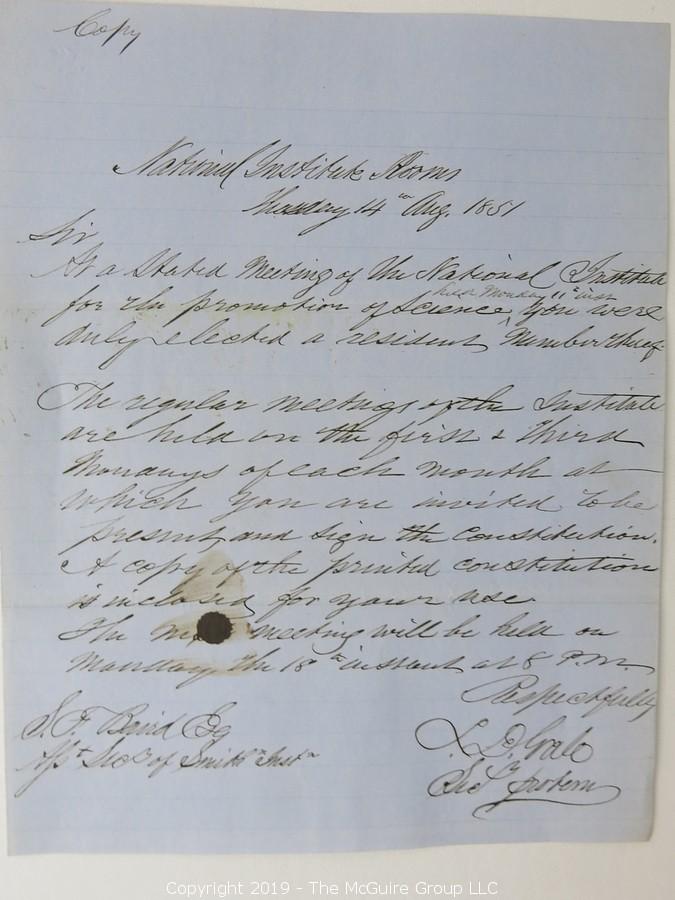 Copy
National Institute Rooms
Thursday 14th Aug. 1851
Sir
At a Stated Meeting of the National Institute
held Monday 11th inst
for the promotion of Science, you were
duly elected a resident Member thereof.
The regular meetings of the Institute
are held on the first & third
Mondays of each month at
which you are invited to be
present, and sign the constitution.
A copy of the printed constitution
is inclosed for your use.
The meeting will be held on
Monday the 18th instant at 8 P.M.
Respectfully
S. F. Baird Esq
L. D. Gale
Asst Secy of Smithn Instn
Secy protem
Copyright 2019 - The McGuire Group LLC